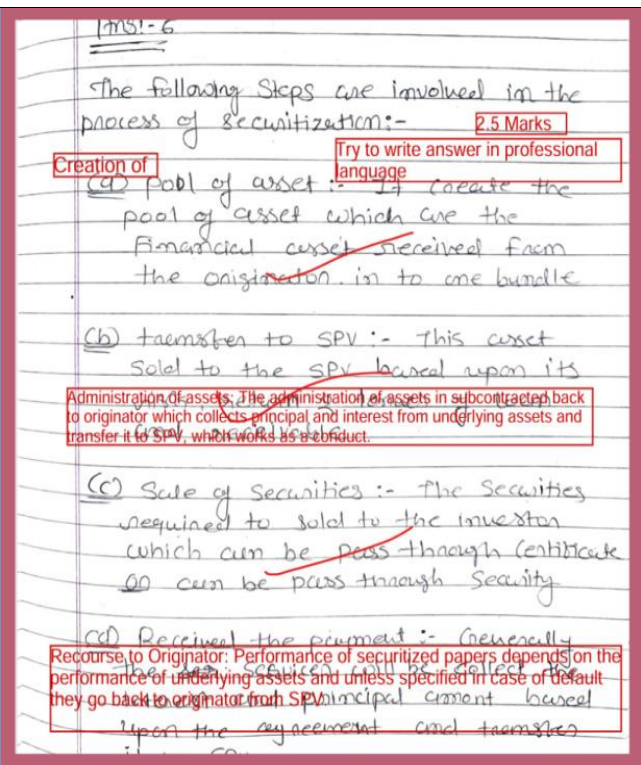 Ans:- 6
The following Steps are involved in the
process of Securitization:-
2.5 Marks
Try to write answer in professional
language
Creation of
(a) Pool of asset :- It create the
pool of asset which are the
Financial asset received from
the originator in to one bundle
(b) transfer to SPV :- This asset
Sold to the SPV based upon its
Administration of assets: The administration of assets in subcontracted back
to originator which collects principal and interest from underlying assets and
transfer it to SPV, which works as a conduct.
(c) Sale of Securities :- The Securities
required to sold to the investor
which can be pass through Certificate
or can be pass through Security
(d) Received the payment :- Generally
Recourse to Originator: Performance of securitized papers depends on the
performance of underlying assets and unless specified in case of default
they go back to originator from SPV.
principal amont based
upon the agreement and transfer